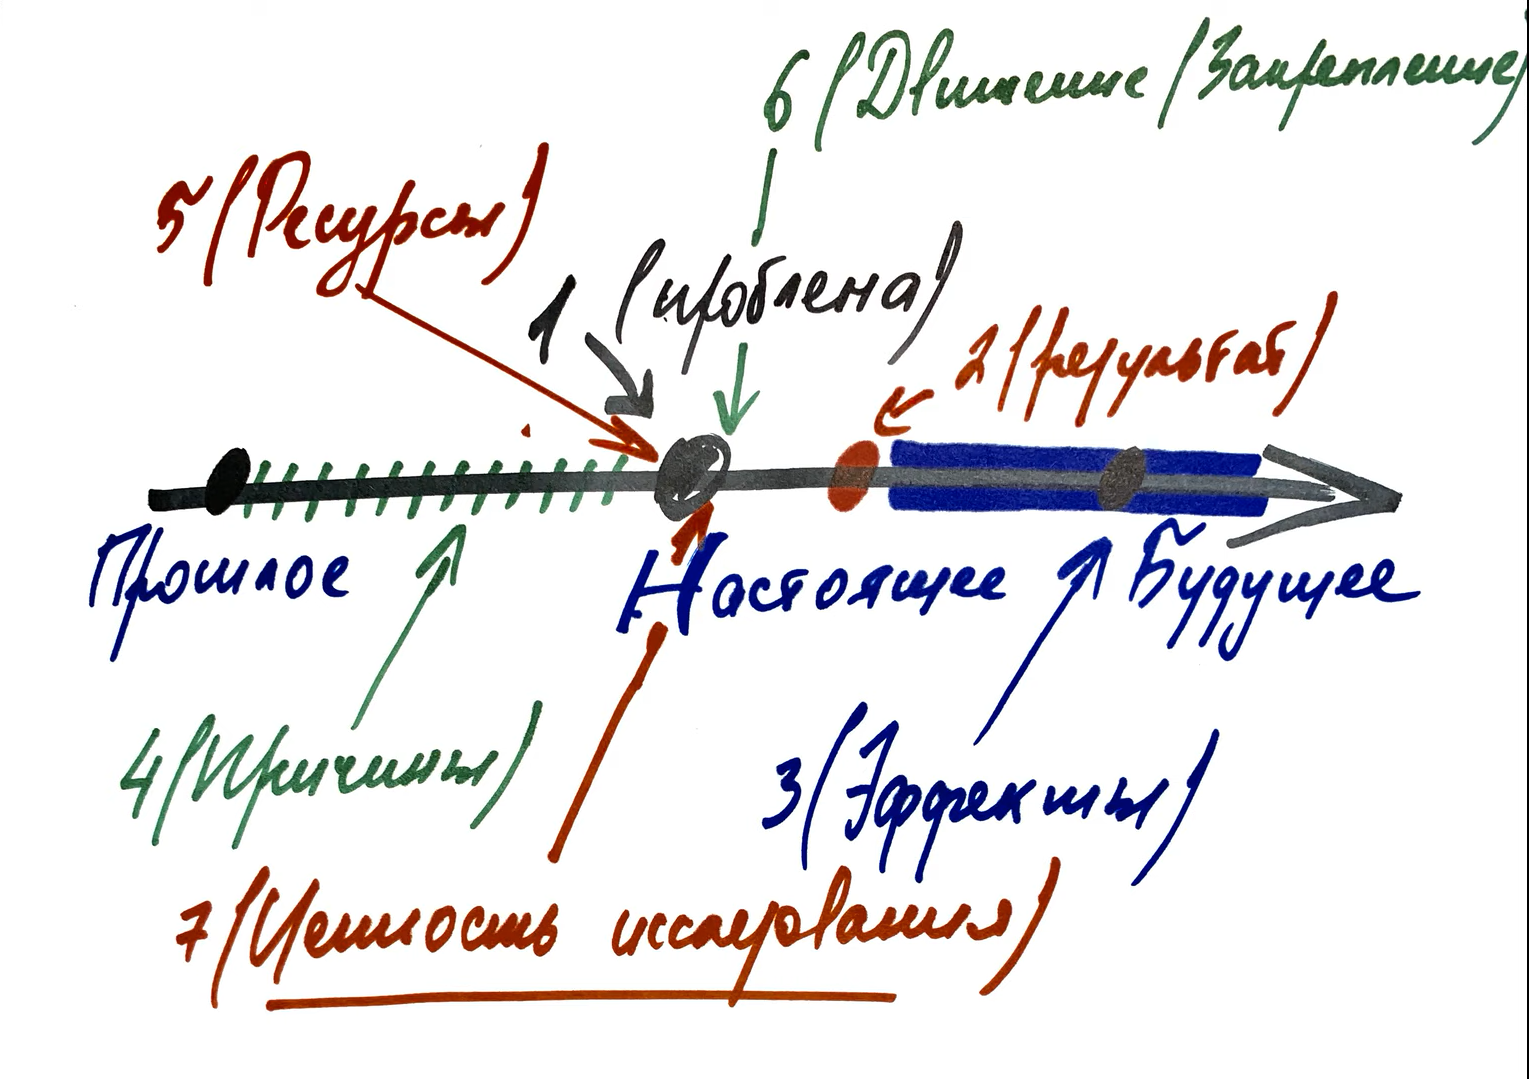 6 (Движение (Закрепление)
5 (Ресурсы)
1 (проблема)
2 (результат)
Прошлое
Настоящее
Будущее
4 (Причины)
3 (Эффекты)
7 (Ценность исследования)